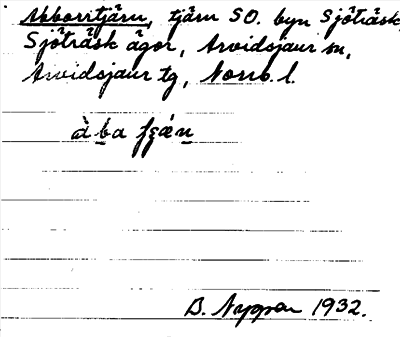 Abborrtjärn, tjärn SO. byn Sjöträsk,
Sjöträsk ägor, Arvidsjaur sn,
Arvidsjaur tg, Norrb. l.
B. Nygren 1932.